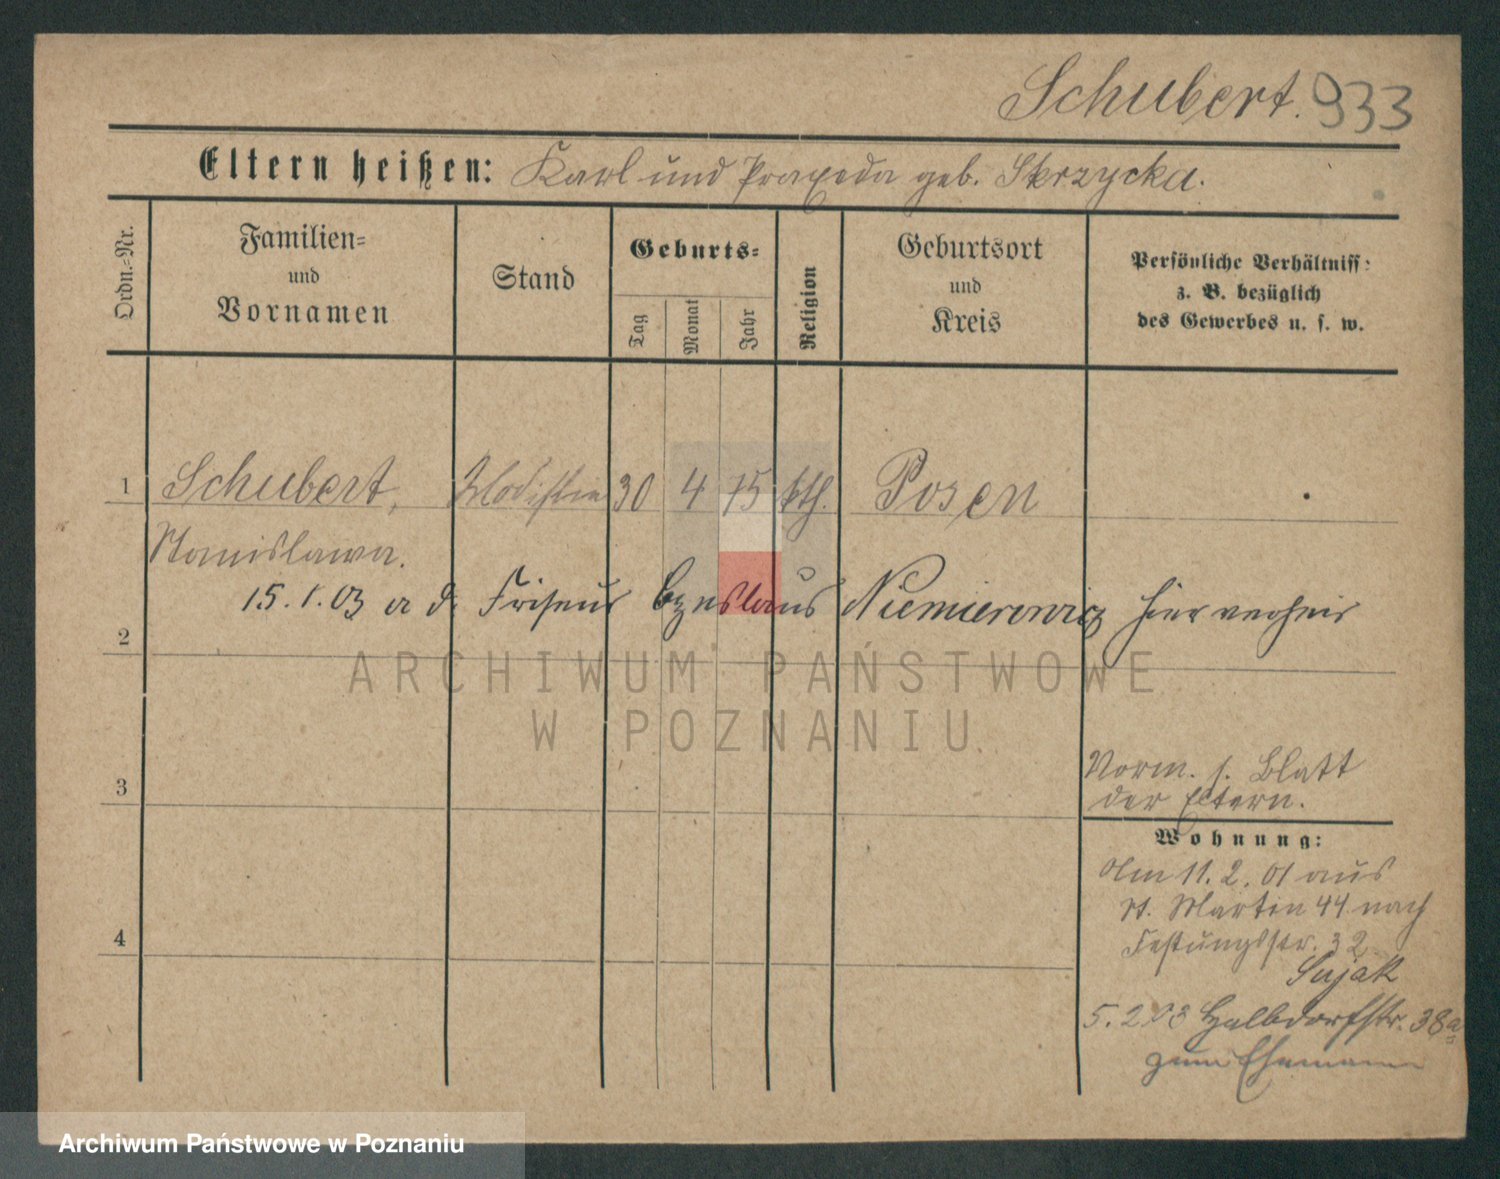 Schubert. 933
Eltern heißen: Karl und Praxeda geb. Skrzycka.
Ordn.=Nr.
Familien=
und
Vornamen
Stand
Geburts=
Tag
Monat
Jahr
Religion
Geburtsort
und
Kreis
Persönliche Verhältniss:
z. B. bezüglich
des Gewerbes u. s. w.
1 Schubert, Modistin 30 4 75 kth. Posen
Stanislawa.
15.1.03 a d. Friseur Czeslaus Niemierowicz hier verheir
2
3
4
Vorm. s. Blatt
der Eltern.
Wohnung:
Am 11.2.01 aus
St. Martin 44 nach
Festungsstr. 32
Sujak
5.2.03 Halbdorfstr. 38a
zum Ehemann
ARCHIWUM PAŃSTWOWE
W POZNANIU
Archiwum Państwowe w Poznaniu